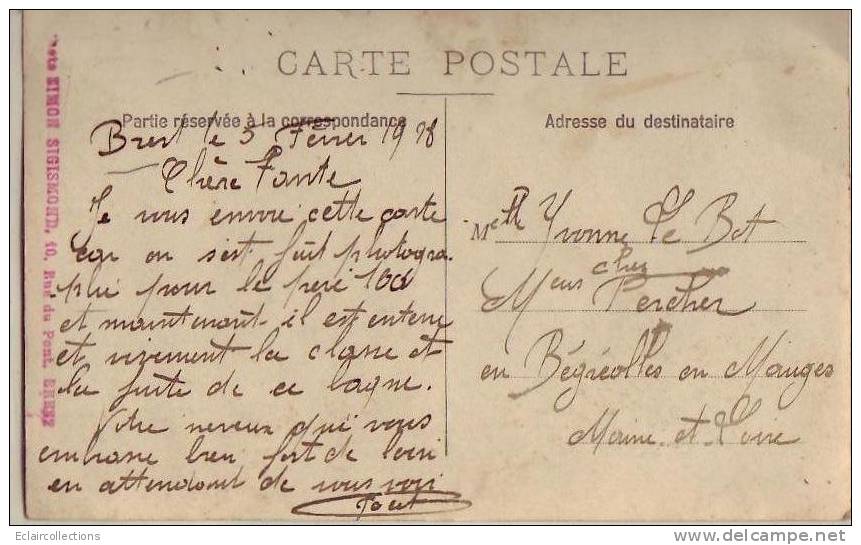 CARTE POSTALE
Partie réservée à la correspondance
Adresse du destinataire
Brest le 5 Février 1928
Chère Tante
Je vous envoie cette carte
car on s'est fait photogra
phié pour le père 100
et maintenant il est enterré
et vivement la classe et
la fuite de ce bagne.
Votre neveux qui vous
embrasse bien fort de loin
en attendant de vous voir
Melle Yvonne Le Bot
chez
Meus Percher
en Bégrolles en Mauges
Maine et Loire
SIMON SIGISMOND, 40, Rue du Pont. BREST
Eclaircollections
delcampe.net